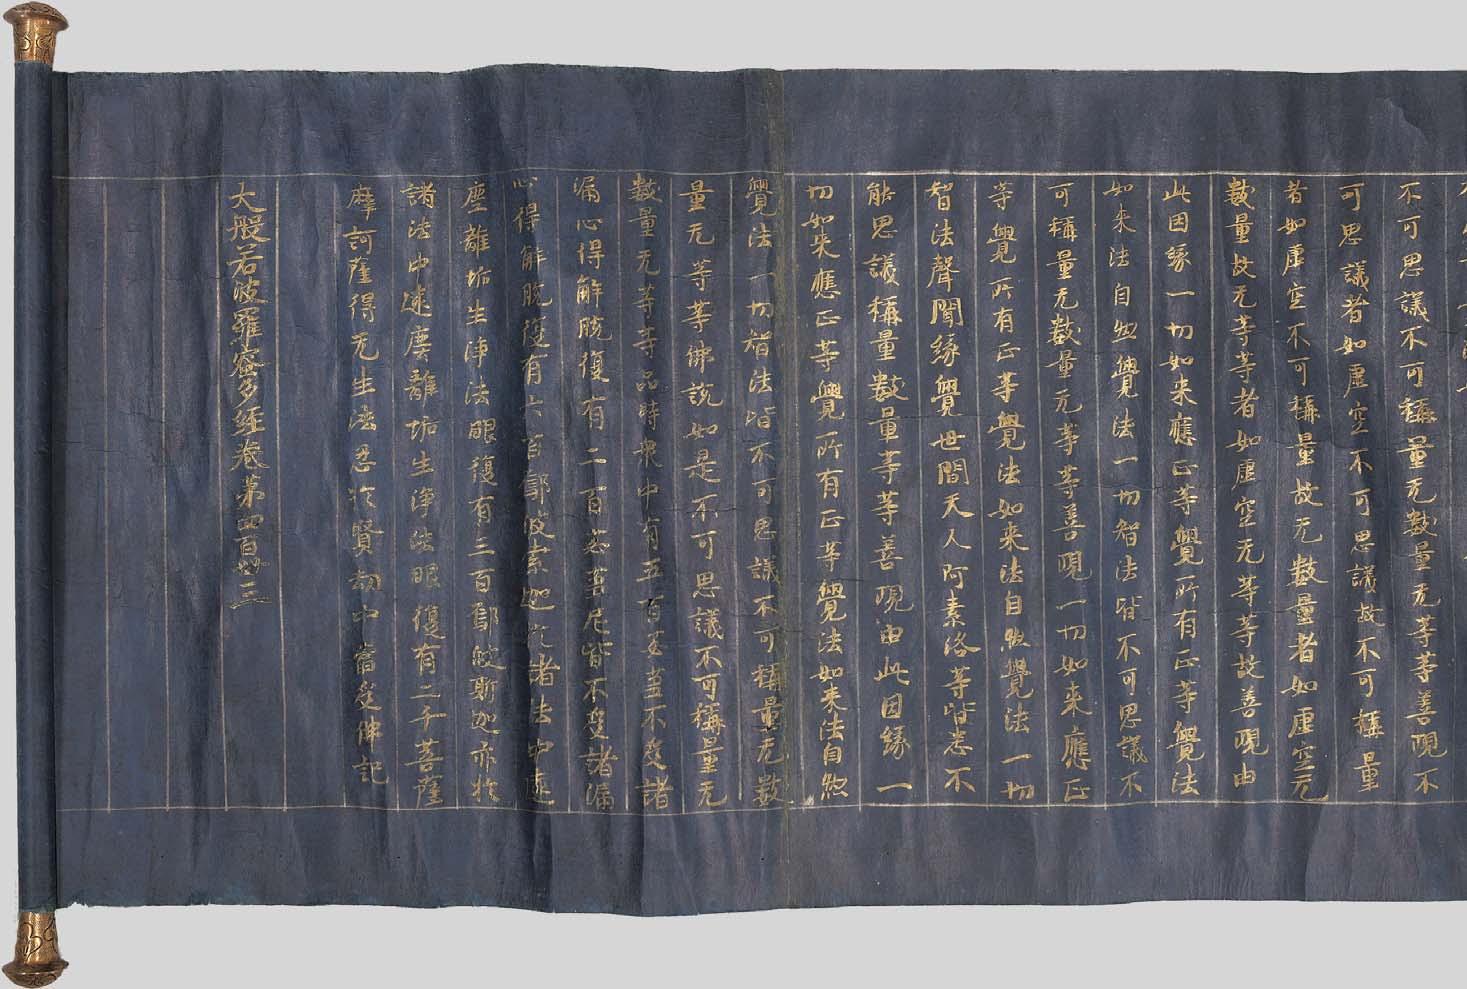 不可思議不可稱量无數量无等等善現不
可思議者如虛空不可思議故不可稱量
者如虛空不可稱量故无數量者如虛空无
數量故无等等者如虛空无等等故善現由
此因緣一切如来應正等覺所有正等覺法
如来法自然覺法一切智法皆不可思議不
可稱量无數量无等等善現一切如来應正
等覺所有正等覺法如来法自然覺法一切
智法聲聞緣覺世間天人阿素洛等皆悉不
能思議稱量數量等等善現由此因緣一
切如来應正等覺所有正等覺法如来法自然
覺法一切智法皆不可思議不可稱量无數
量无等等佛說如是不可思議不可稱量无
數量无等等品時衆中有五百苾芻不受諸
漏心得解脫復有二百苾芻尼皆不受諸漏
心得解脫復有六百鄔波索迦於諸法中遠
塵離垢生淨法眼復有三百鄔波斯迦亦於
諸法中遠塵離垢生淨法眼復有二千菩薩
摩訶薩得无生法忍於賢劫中當受佛記
大般若波羅蜜多經卷第四百卌三